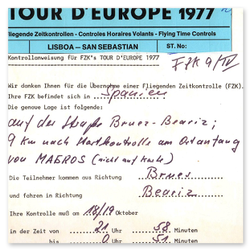 TOUR D'EUROPE 1977
Fliegende Zeitkontrollen - Controles Horaires Volants - Flying Time Controls
LISBOA – SAN SEBASTIAN ST. No:
Kontrollanweisung für FZK's TOUR D'EUROPE 1977
FZK 9/IV
Wir danken Ihnen für die Übernahme einer Fliegenden Zeitkontrolle (FZK).
Ihre FZK befindet sich in Spanien
Die genaue Lage ist folgende:
auf der Straße Brues - Beariz;
9 km nach Startkontrolle am Ortanfang
von MAGROS (nicht auf Karte)
Die Teilnehmer kommen aus Richtung Brues
und fahren in Richtung Beariz
Ihre Kontrolle muß am 18/19 Oktober
in der Zeit von 21 Uhr 58 Minuten
bis 0 Uhr 51 Minuten